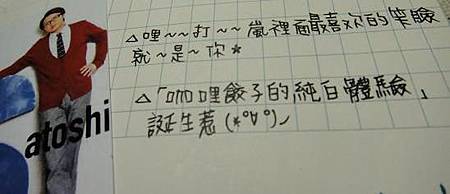 △哩~~打~~嵐裡面最喜欢的笑臉
就~是~你★
△「咖哩餃子的純白體驗」
誕生惹(*°∀°)ノ
atoshi